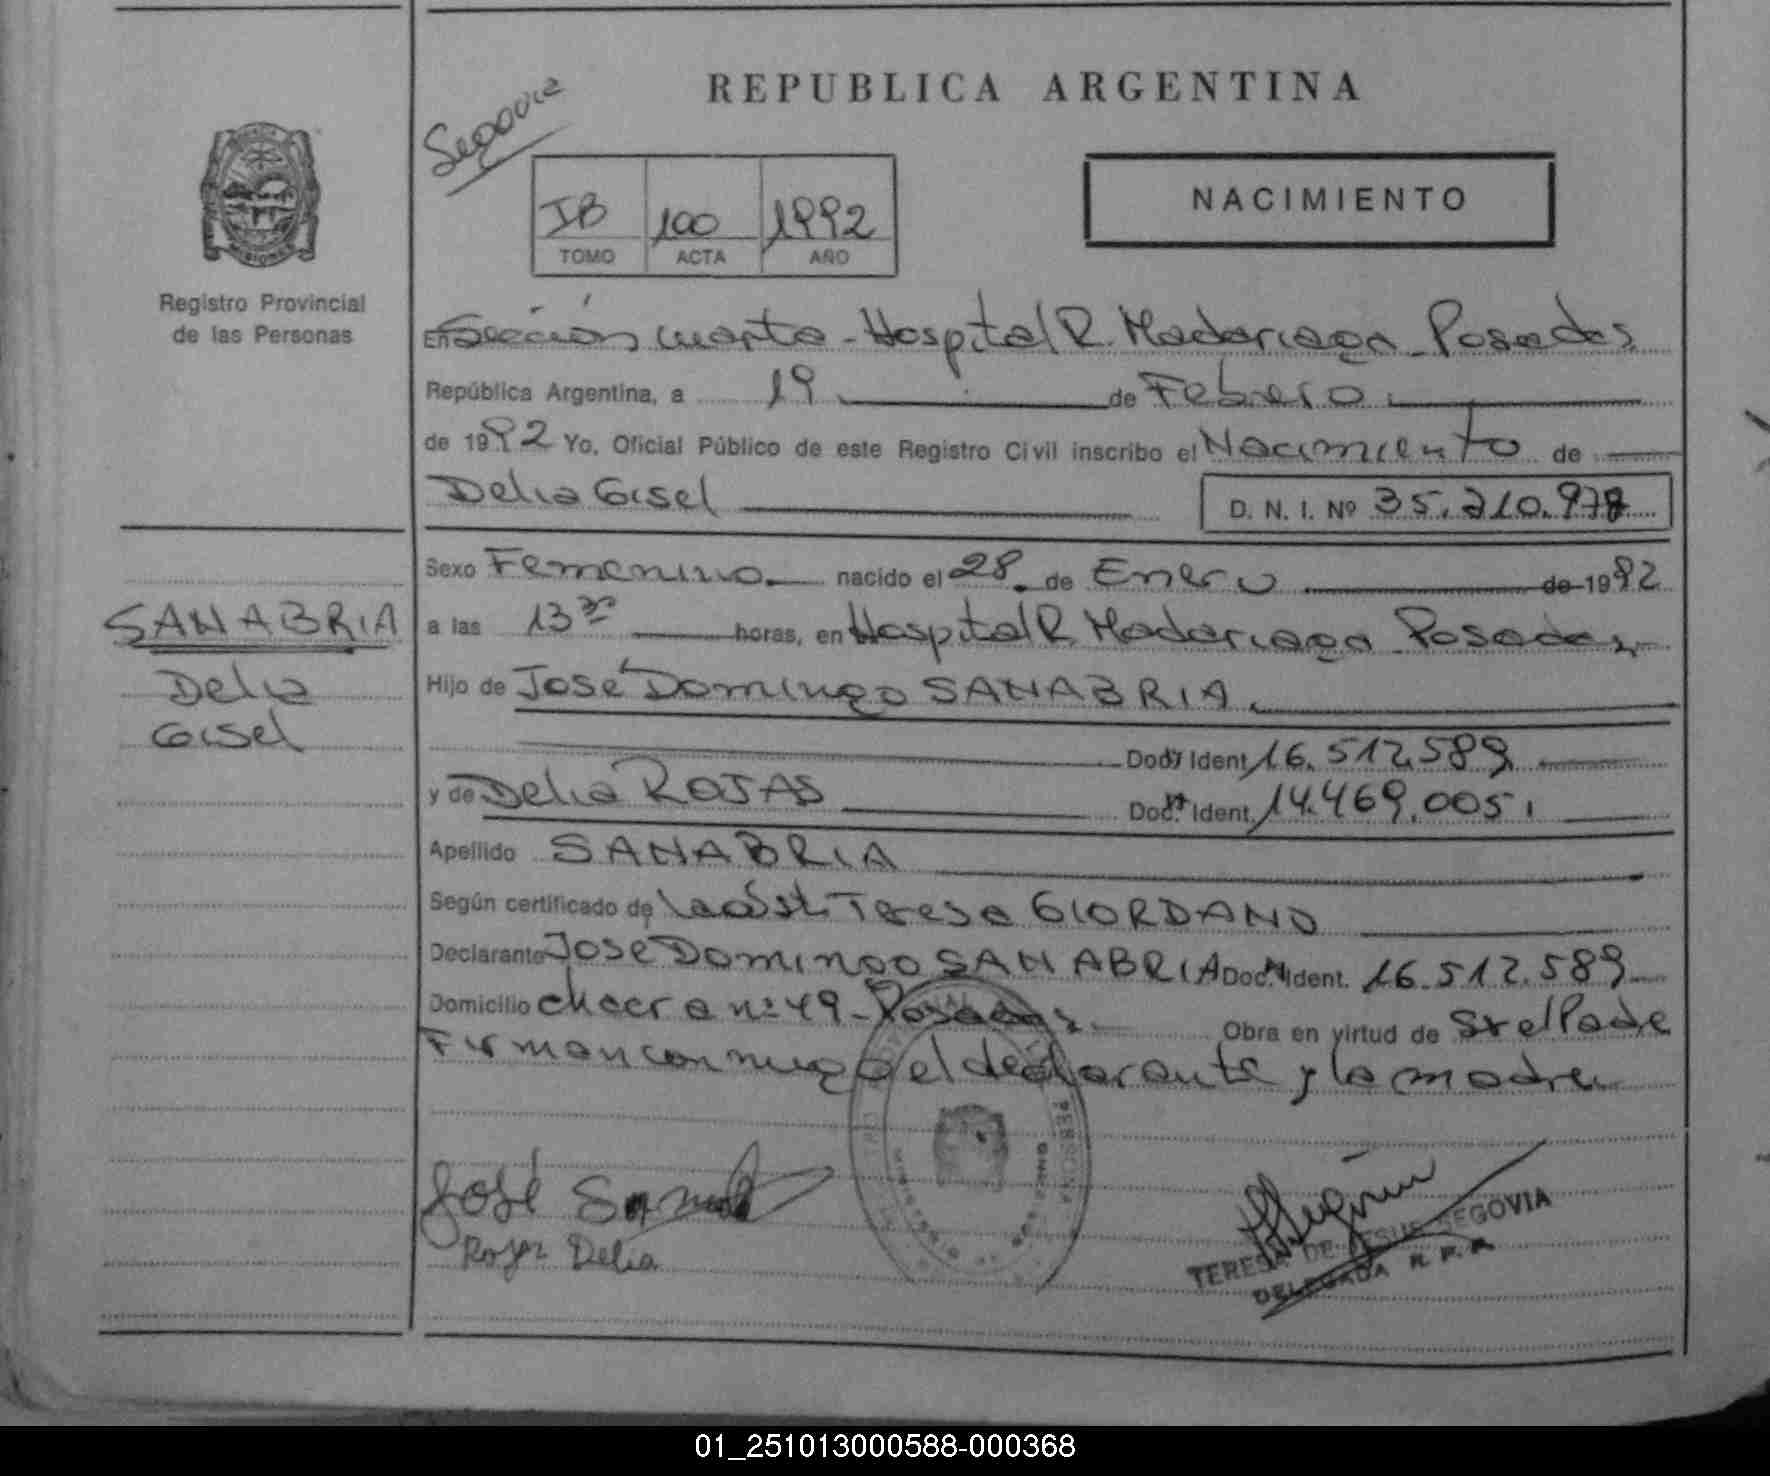 REPUBLICA ARGENTINA
Segovia
IB 100 1992
TOMO ACTA AÑO
NACIMIENTO
Registro Provincial
de las Personas
En Sección cuarta - Hospital R. Madariaga - Posadas
República Argentina, a 19 de Febrero.
de 1992 Yo, Oficial Público de este Registro Civil inscribo el Nacimiento de
Delia Gisel D. N. I. Nº 35.210.978
Sexo Femenino. nacido el 28. de Enero de 1992
a las 13 30 horas, en Hospital R. Madariaga - Posadas
Hijo de José Domingo SANABRIA.
Doc. Ident. 16.512.589
y de Delia ROJAS Doc. Ident. 14.469.005
Apellido SANABRIA
Según certificado de la obst. Teresa GIORDANO
Declarante José Domingo SANABRIA Doc. Ident. 16.512.589
Domicilio chacra nº 49 - Posadas Obra en virtud de ser el Padre
Firman conmigo el declarante y la madre
SANABRIA
Delia
Gisel
José
Rojas Delia
MINISTERIO
TERESA DE JESUS SEGOVIA
DELEGADA R. P. P.
01_251013000588-000368